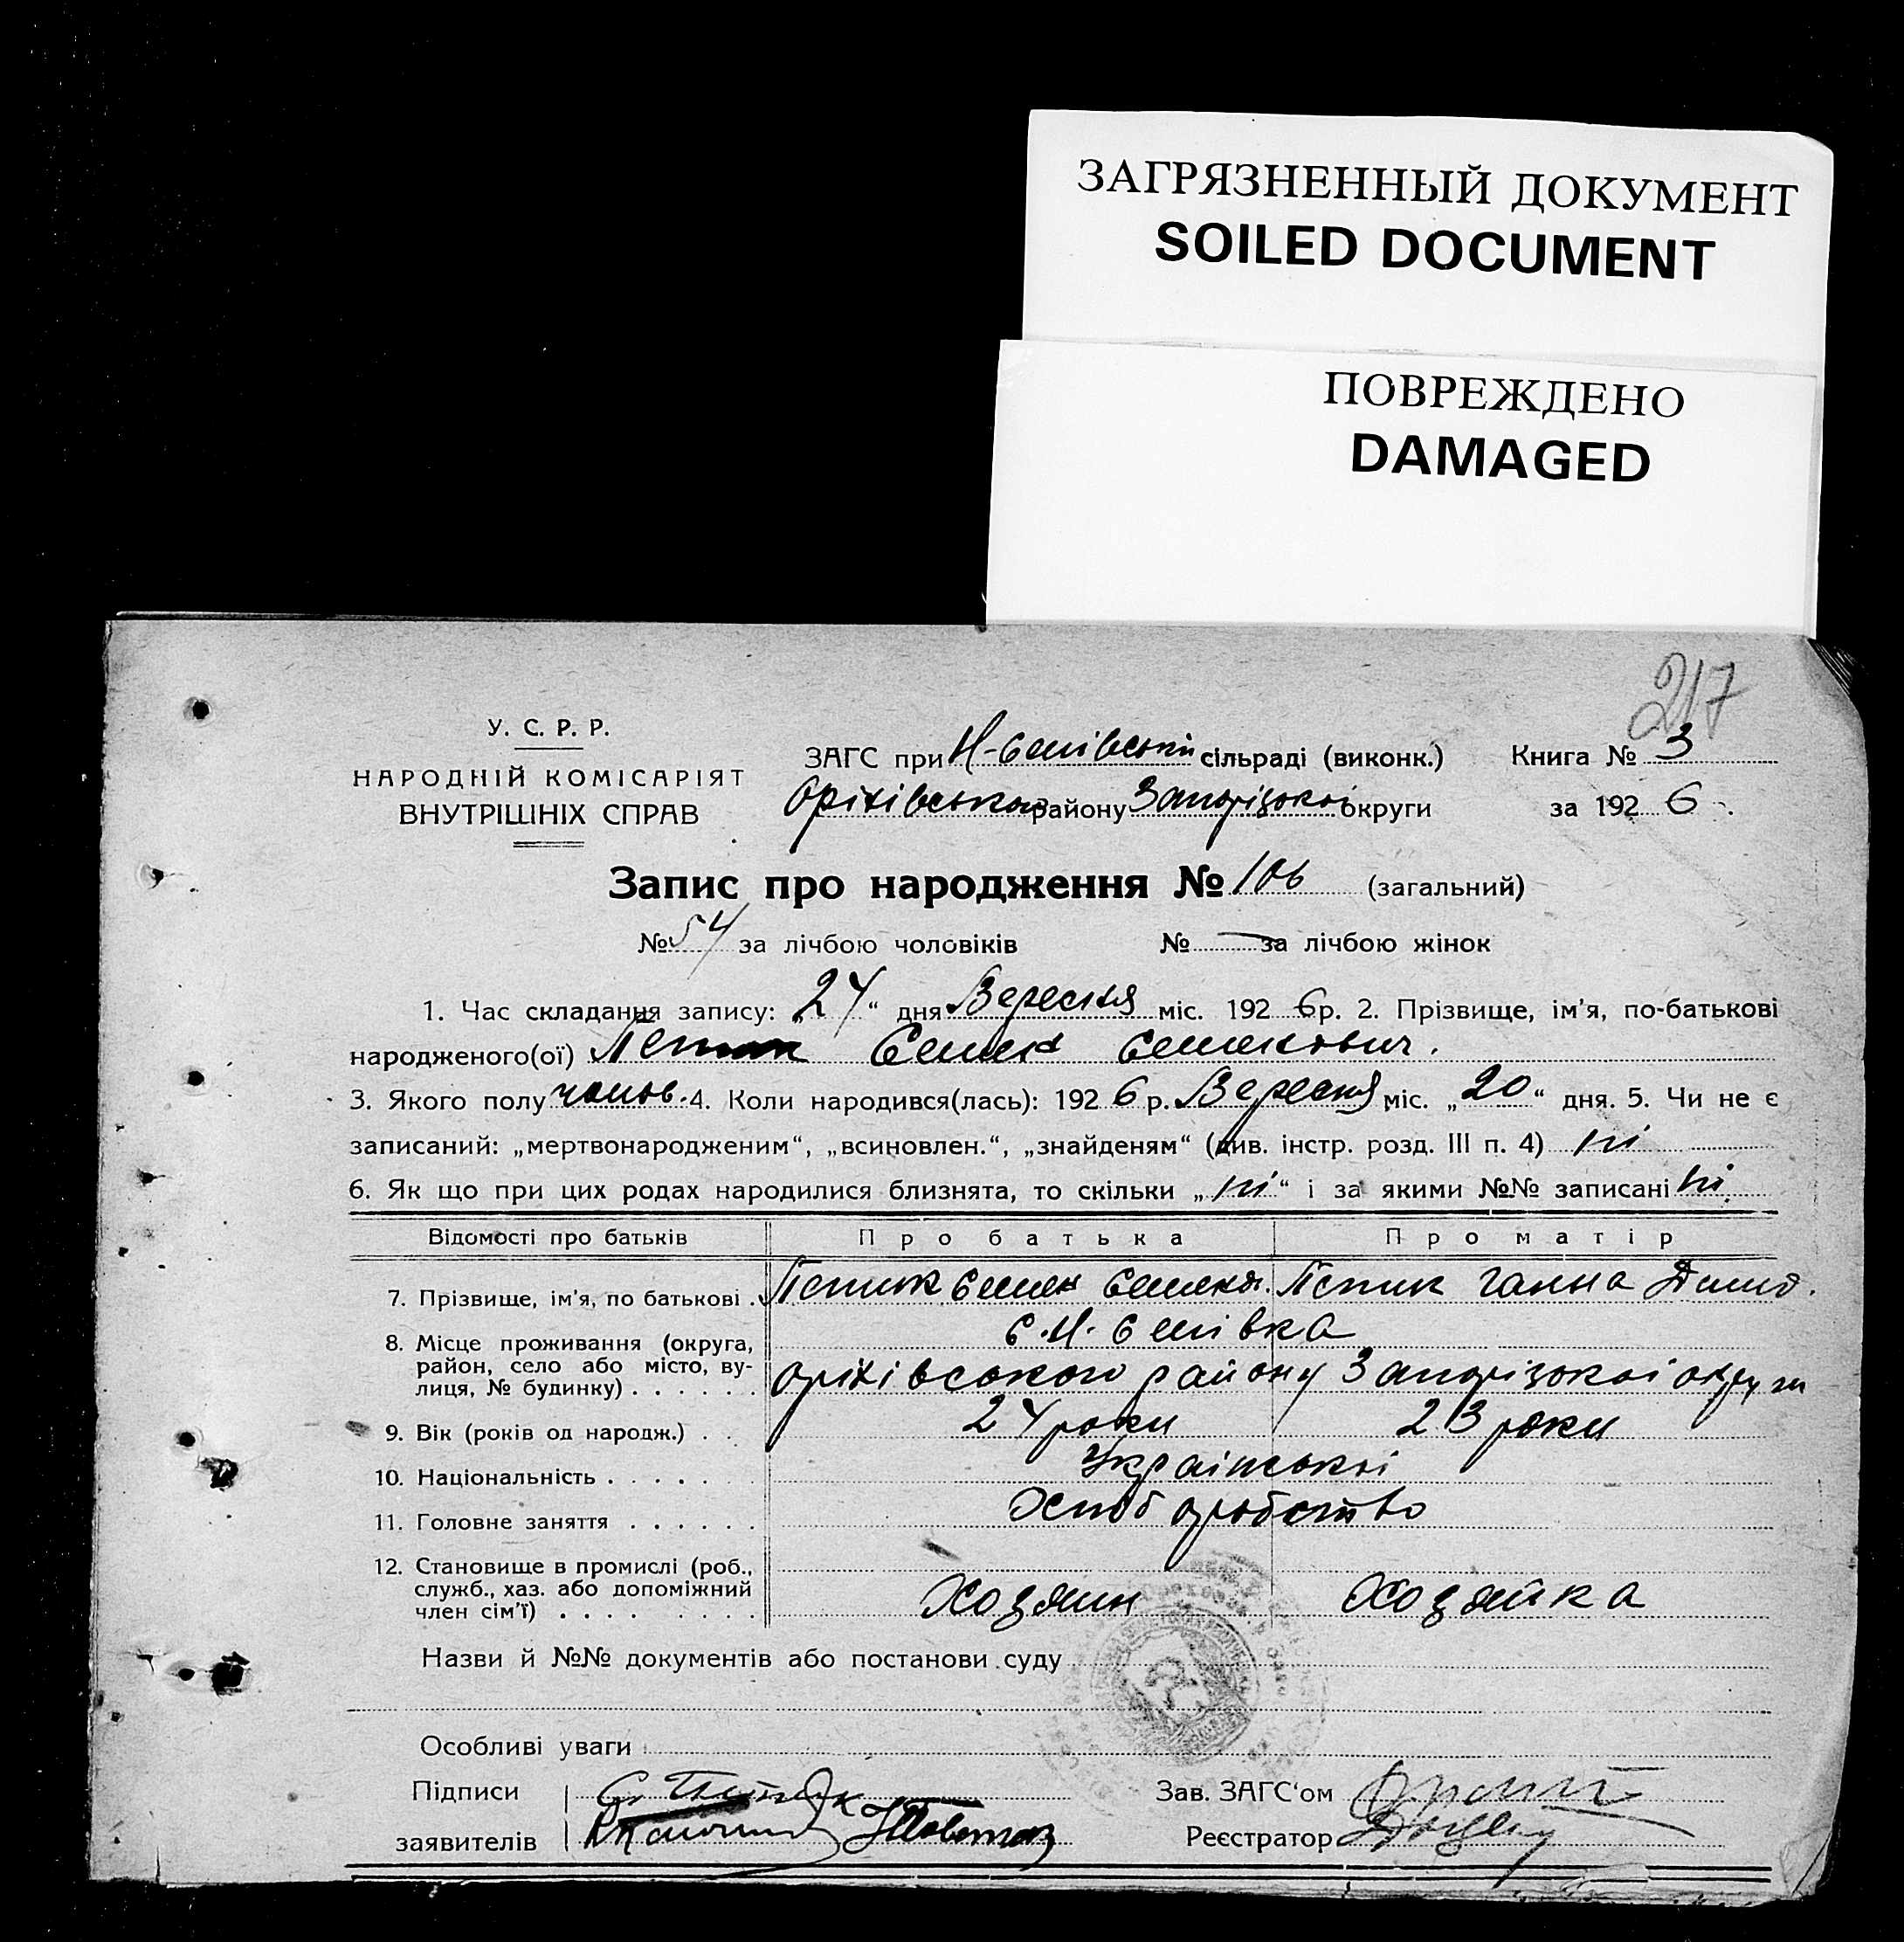 ЗАГРЯЗНЕННЫЙ ДОКУМЕНТ
SOILED DOCUMENT
ПОВРЕЖДЕНО
DAMAGED
217
У. С. Р. Р.
НАРОДНІЙ КОМІСАРІЯТ
ВНУТРІШНІХ СПРАВ
ЗАГС при сільраді (виконк.) Книга № 3
Оріхівського району Запорізької округи за 1926
Запис про народження № 106 (загальний)
№ 54 за лічбою чоловіків № — за лічбою жінок
1. Час складання запису: „24“ дня Вересня міс. 1926 р. 2. Прізвище, ім'я, по-батькові
народженого(ої) Семен Семенович.
3. Якого полу чолов. 4. Коли народився(лась): 1926 р. Вересня міс. „20“ дня. 5. Чи не є
записаний: „мертвонародженим“, „всиновлен.“, „знайденям“ (див. інстр. розд. III п. 4) ні
6. Як що при цих родах народилися близнята, то скільки „ні“ і за якими №№ записані ні
Відомості про батьків Про батька Про матір
7. Прізвище, ім'я, по батькові . Петик Семен Семенов. Петик Ганна
8. Місце проживання (округа,
район, село або місто, ву-
лиця, № будинку) . . . . . .
Оріхівського району Запорізької округи
9. Вік (років од народж.) . . 24 роки 23 роки
10. Національність . . . . . Української
11. Головне заняття . . . . . . Хліборобство
12. Становище в промислі (роб.,
служб., хаз. або допоміжний
член сім'ї) . . . . . . . . Хозяин Хозяйка
Назви й №№ документів або постанови суду
Особливі уваги
Підписи
заявителів
Зав. ЗАГС'ом
Реєстратор